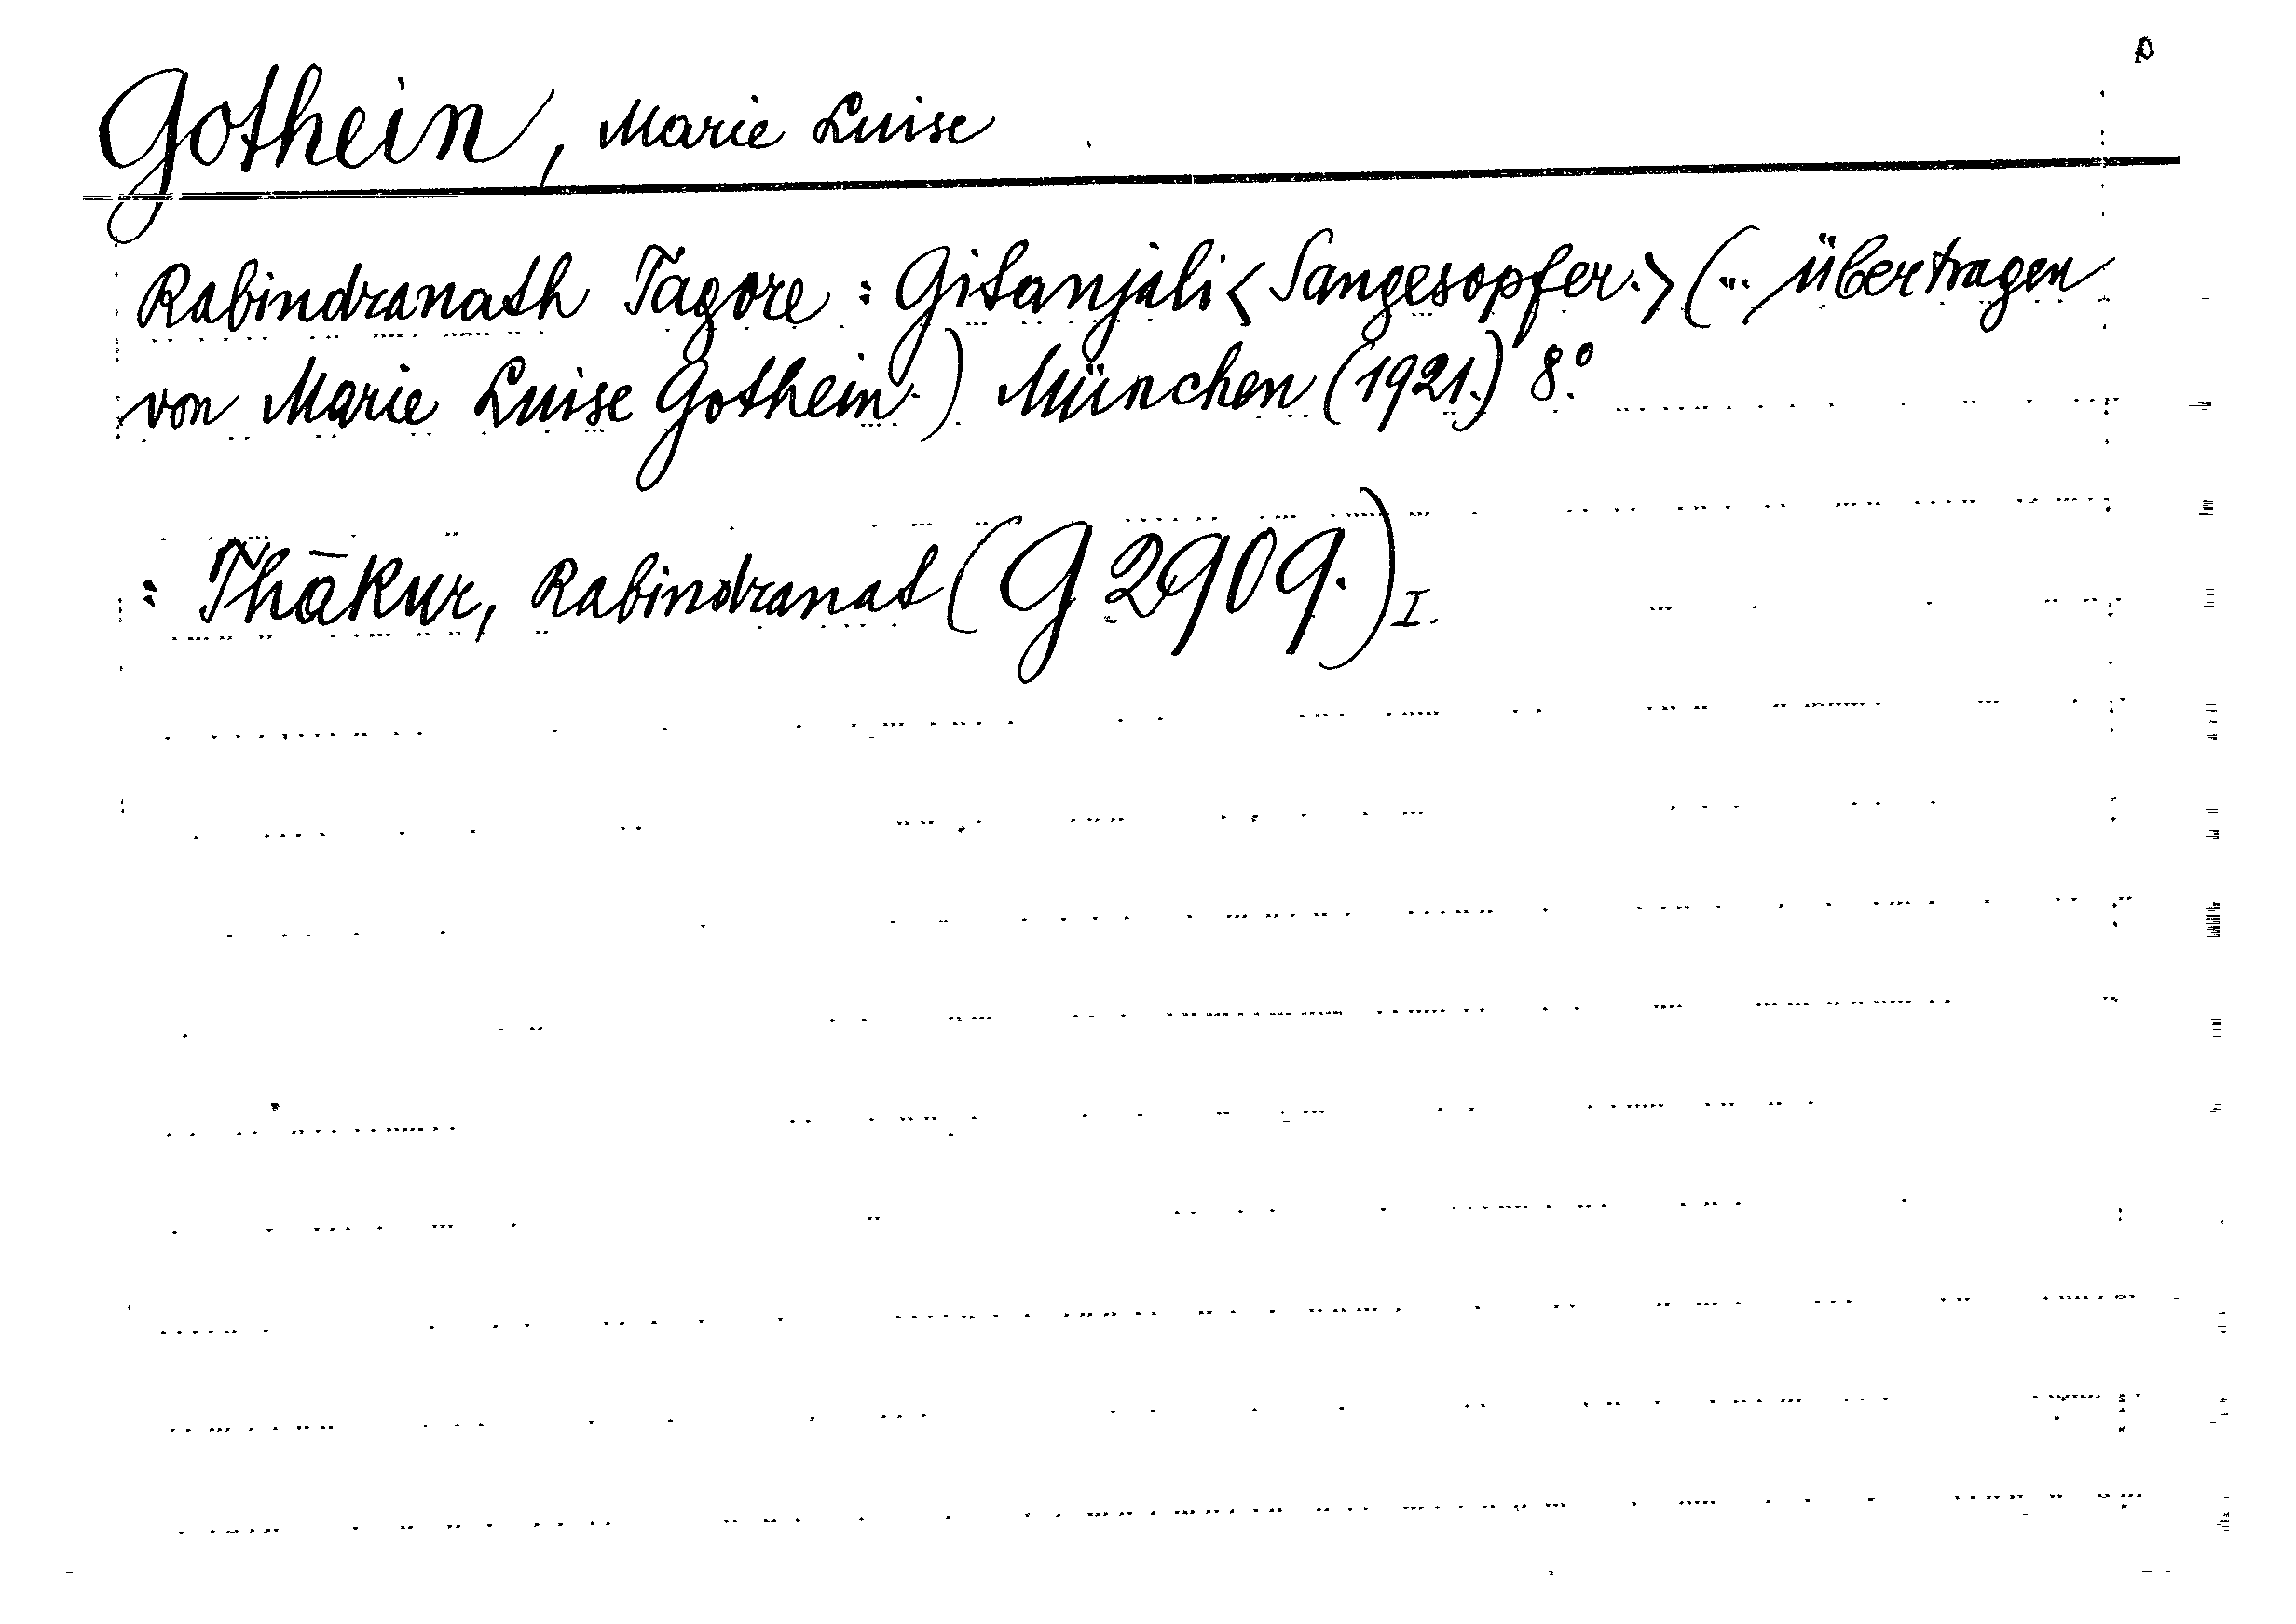 Gothein, Marie Luise
Rabindranath Tagore: Gitanjali <Sangesopfer.> (... übertragen
von Marie Luise Gothein.) München (1921.) 8°.
: Thākur, Rabindranat (G 2909.) I.